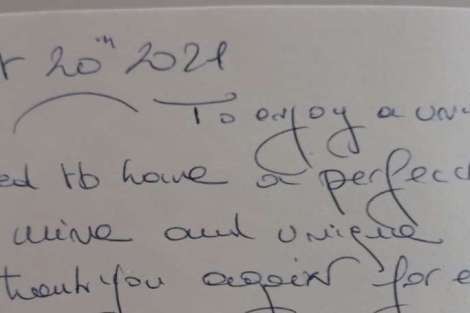 r 20th 2021
To enjoy a un
ed to have a perfec
mine and unique
thank you again for e